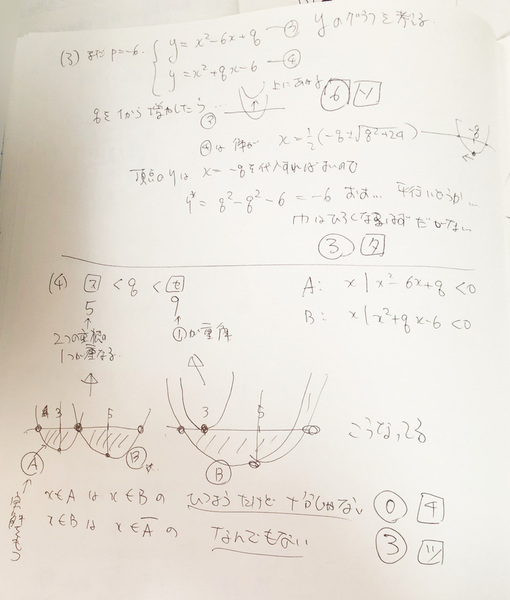 (3) まだ p=-6. { y = x²-6x+q ─ ③ yのグラフを考える
y = x²+qx-6 ─ ④
上にあがる
qを1から増かしたら… ③ ⑥ ソ
④は 解が x = ½(-q±√q²+24) -q
頂点のyは x = -qを代入すればよいので
y = q²-q²-6 = -6 おお… 平行いどうか…
巾はひろくなるはずだがない…
③ タ
(4) ス < q < セ A: x | x²-6x+q <0
5 9 B: x | x²+qx-6 <0
2つの実根の ①が重解
1つが重なる
3 5 3 5 こうなってる
A B B
x∈A は x∈B の ひつようだけど十分じゃない ⓪ チ
x∈B は x∈A̅ の なんでもない ③ ツ
実解をもつ